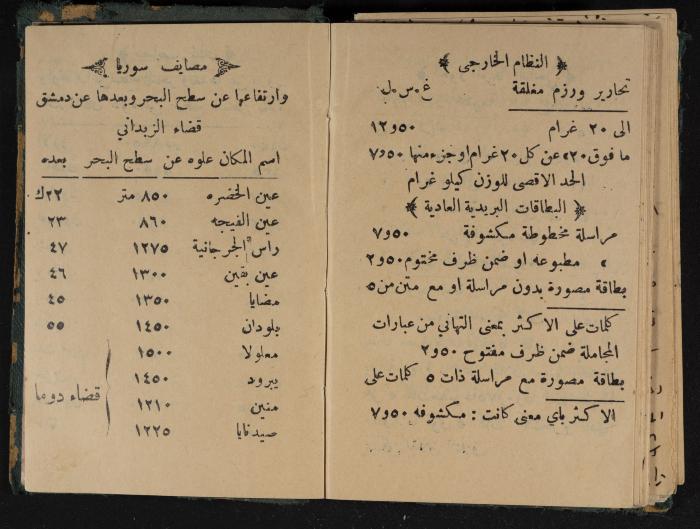 النظام الخارجي
تحارير ورزم مغلقة غ.س.ل
الى ٢٠ غرام ١٢و٥٠
ما فوق ٢٠ عن كل ٢٠ غرام او جزء منها ٧و٥٠
الحد الاقصى للوزن كيلو غرام
البطاقات البريدية العادية
مراسلة مخطوطة مكشوفة ٧و٥٠
» مطبوعه او ضمن ظرف مختوم ٢و٥٠
بطاقة مصورة بدون مراسلة او مع متن من ٥
كلمات على الاكثر بمعنى التهاني من عبارات
المجاملة ضمن ظرف مفتوح ٢و٥٠
بطاقة مصورة مع مراسلة ذات ٥ كلمات على
الاكثر باي معنى كانت : مكشوفه ٧و٥٠
مصايف سوريا
وارتفاعها عن سطح البحر وبعدها عن دمشق
قضاء الزبداني
اسم المكان علوه عن سطح البحر بعده
عين الخضره ٨٥٠ متر ٢٢ك
عين الفيجه ٨٦٠ ٢٣
راس الجرجانية ١٢٧٥ ٤٧
عين بقين ١٣٠٠ ٤٦
مضايا ١٣٥٠ ٤٥
بلودان ١٤٥٠ ٥٥
معلولا ١٥٠٠
يبرود ١٤٥٠
قضاء دوما
منين ١٢١٠
صيدنايا ١٢٢٥